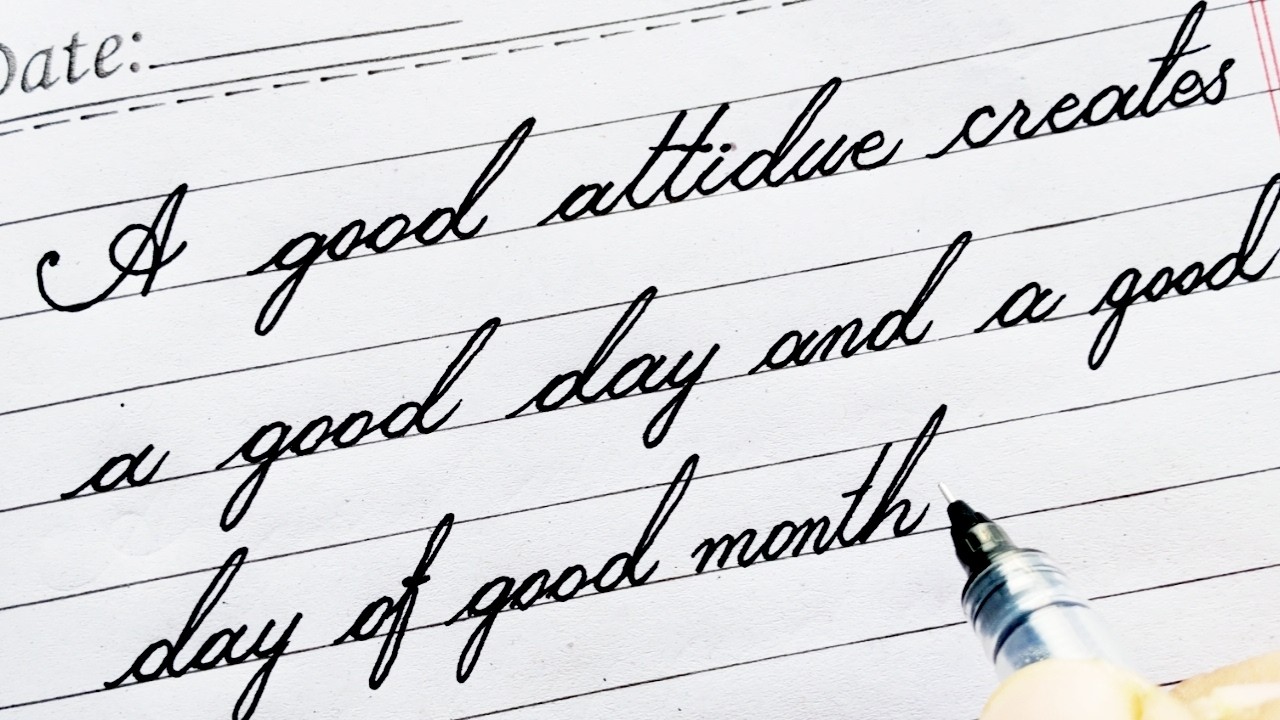 Date:
A good attidue creates
a good day and a good
day of good month